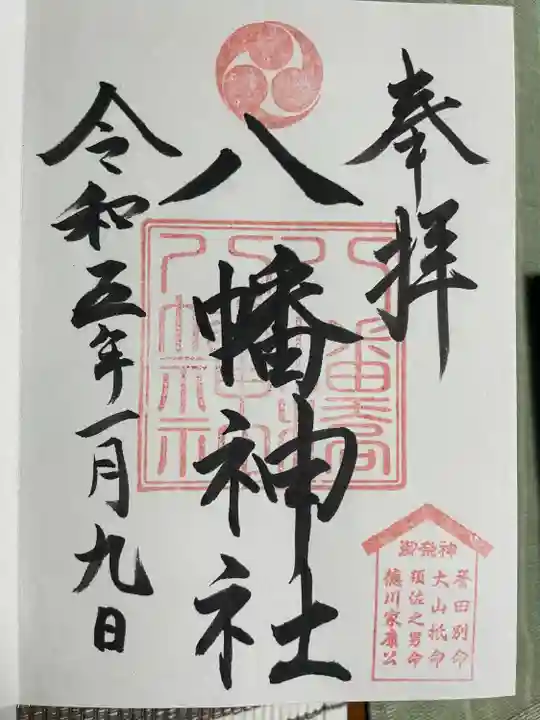 奉拝
八幡神社
令和五年一月九日
御祭神
誉田別命
大山祇命
須佐之男命
徳川家康公